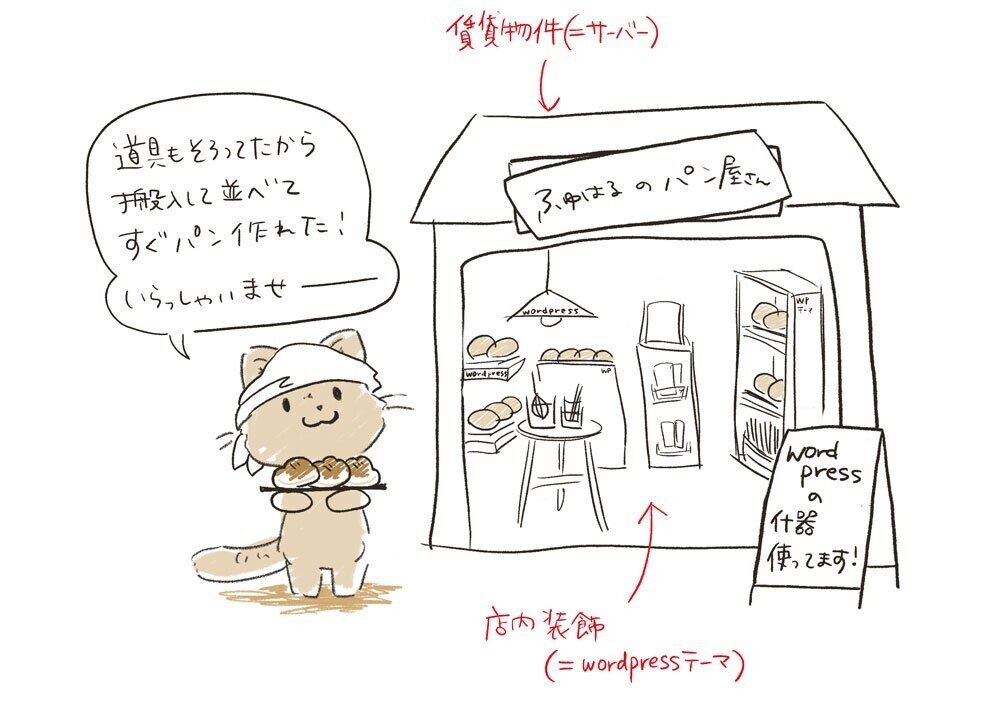 賃貸物件(=サーバー)
道具もそろってたから
搬入して並べて
すぐパン作れた!
いらっしゃいませ――
ふゆはるのパン屋さん
wordpress
wordpress
WP
WP
テーマ
word
press
の
什器
使ってます!
店内装飾
(=wordpressテーマ)